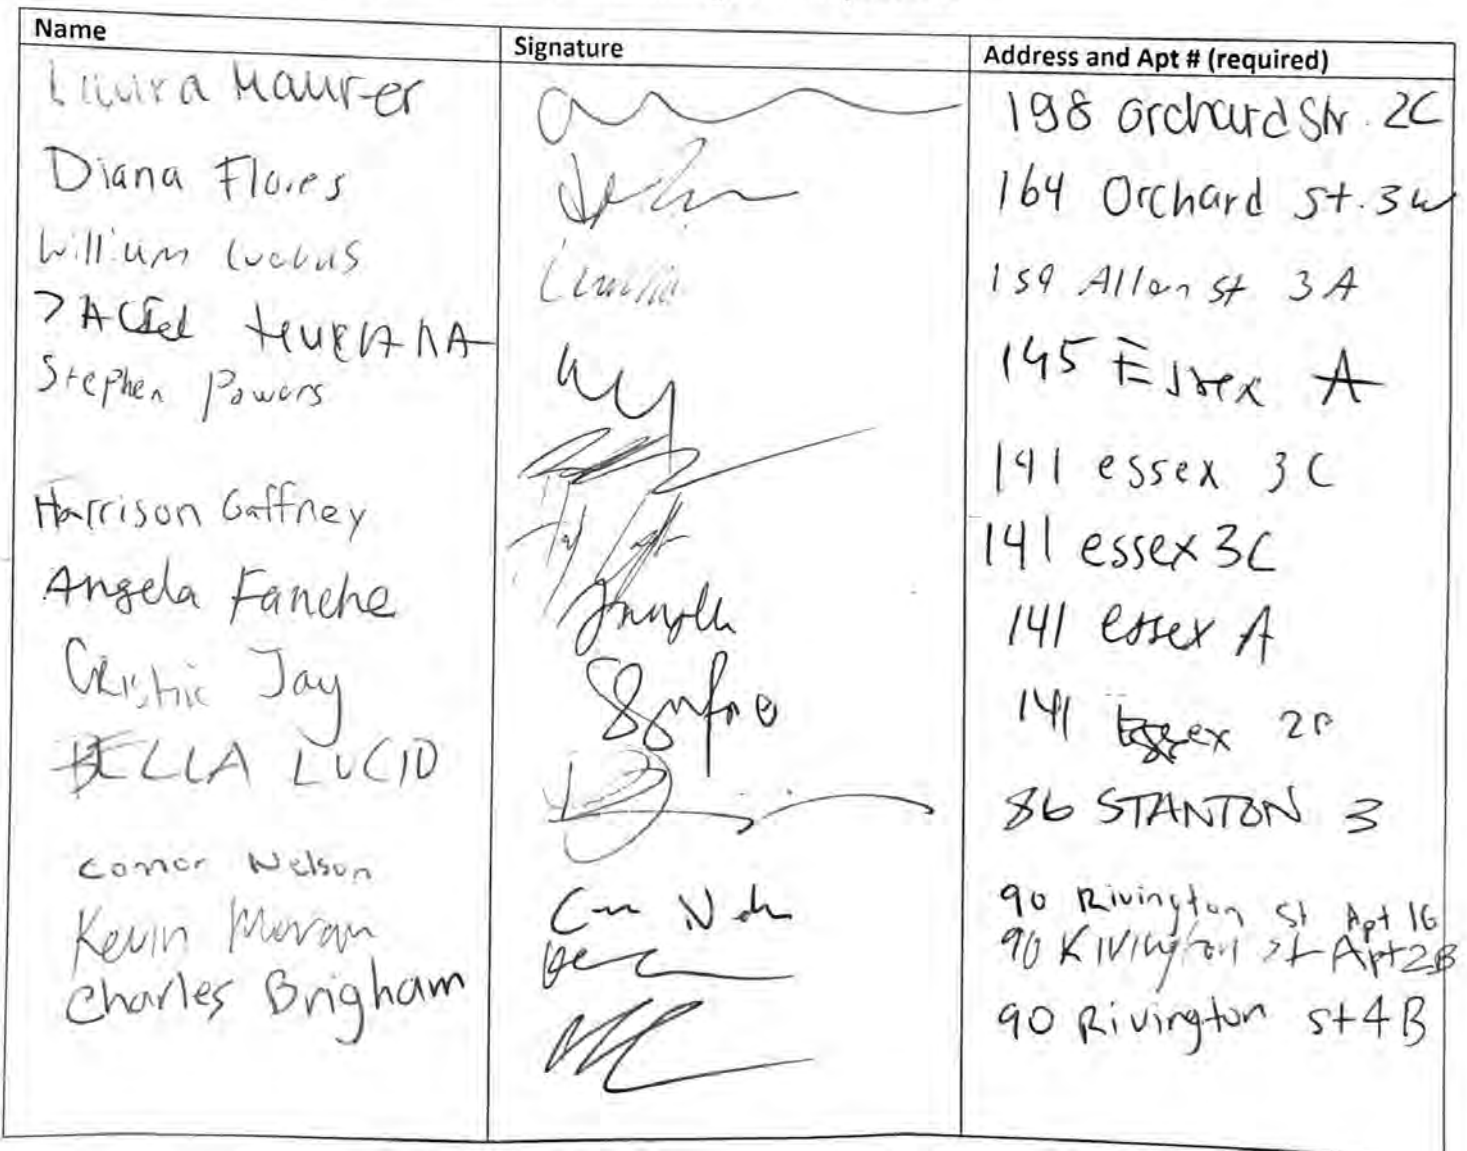 Name Signature Address and Apt # (required)
Laura Maurer 198 Orchard Str. 2C
Diana Flores 164 Orchard St. 3W
William 159 Allen St 3A
145 Essex A
Stephen Powers 141 essex 3C
Harrison Gaffney 141 essex 3C
Angela Fanche 141 essex A
Christie Jay 141 Essex
BELLA LUCID 86 STANTON 3
Connor Nelson 90 Rivington St Apt 1G
Kevin Moran 90 Rivington St Apt 2B
Charles Brigham 90 Rivington St 4B